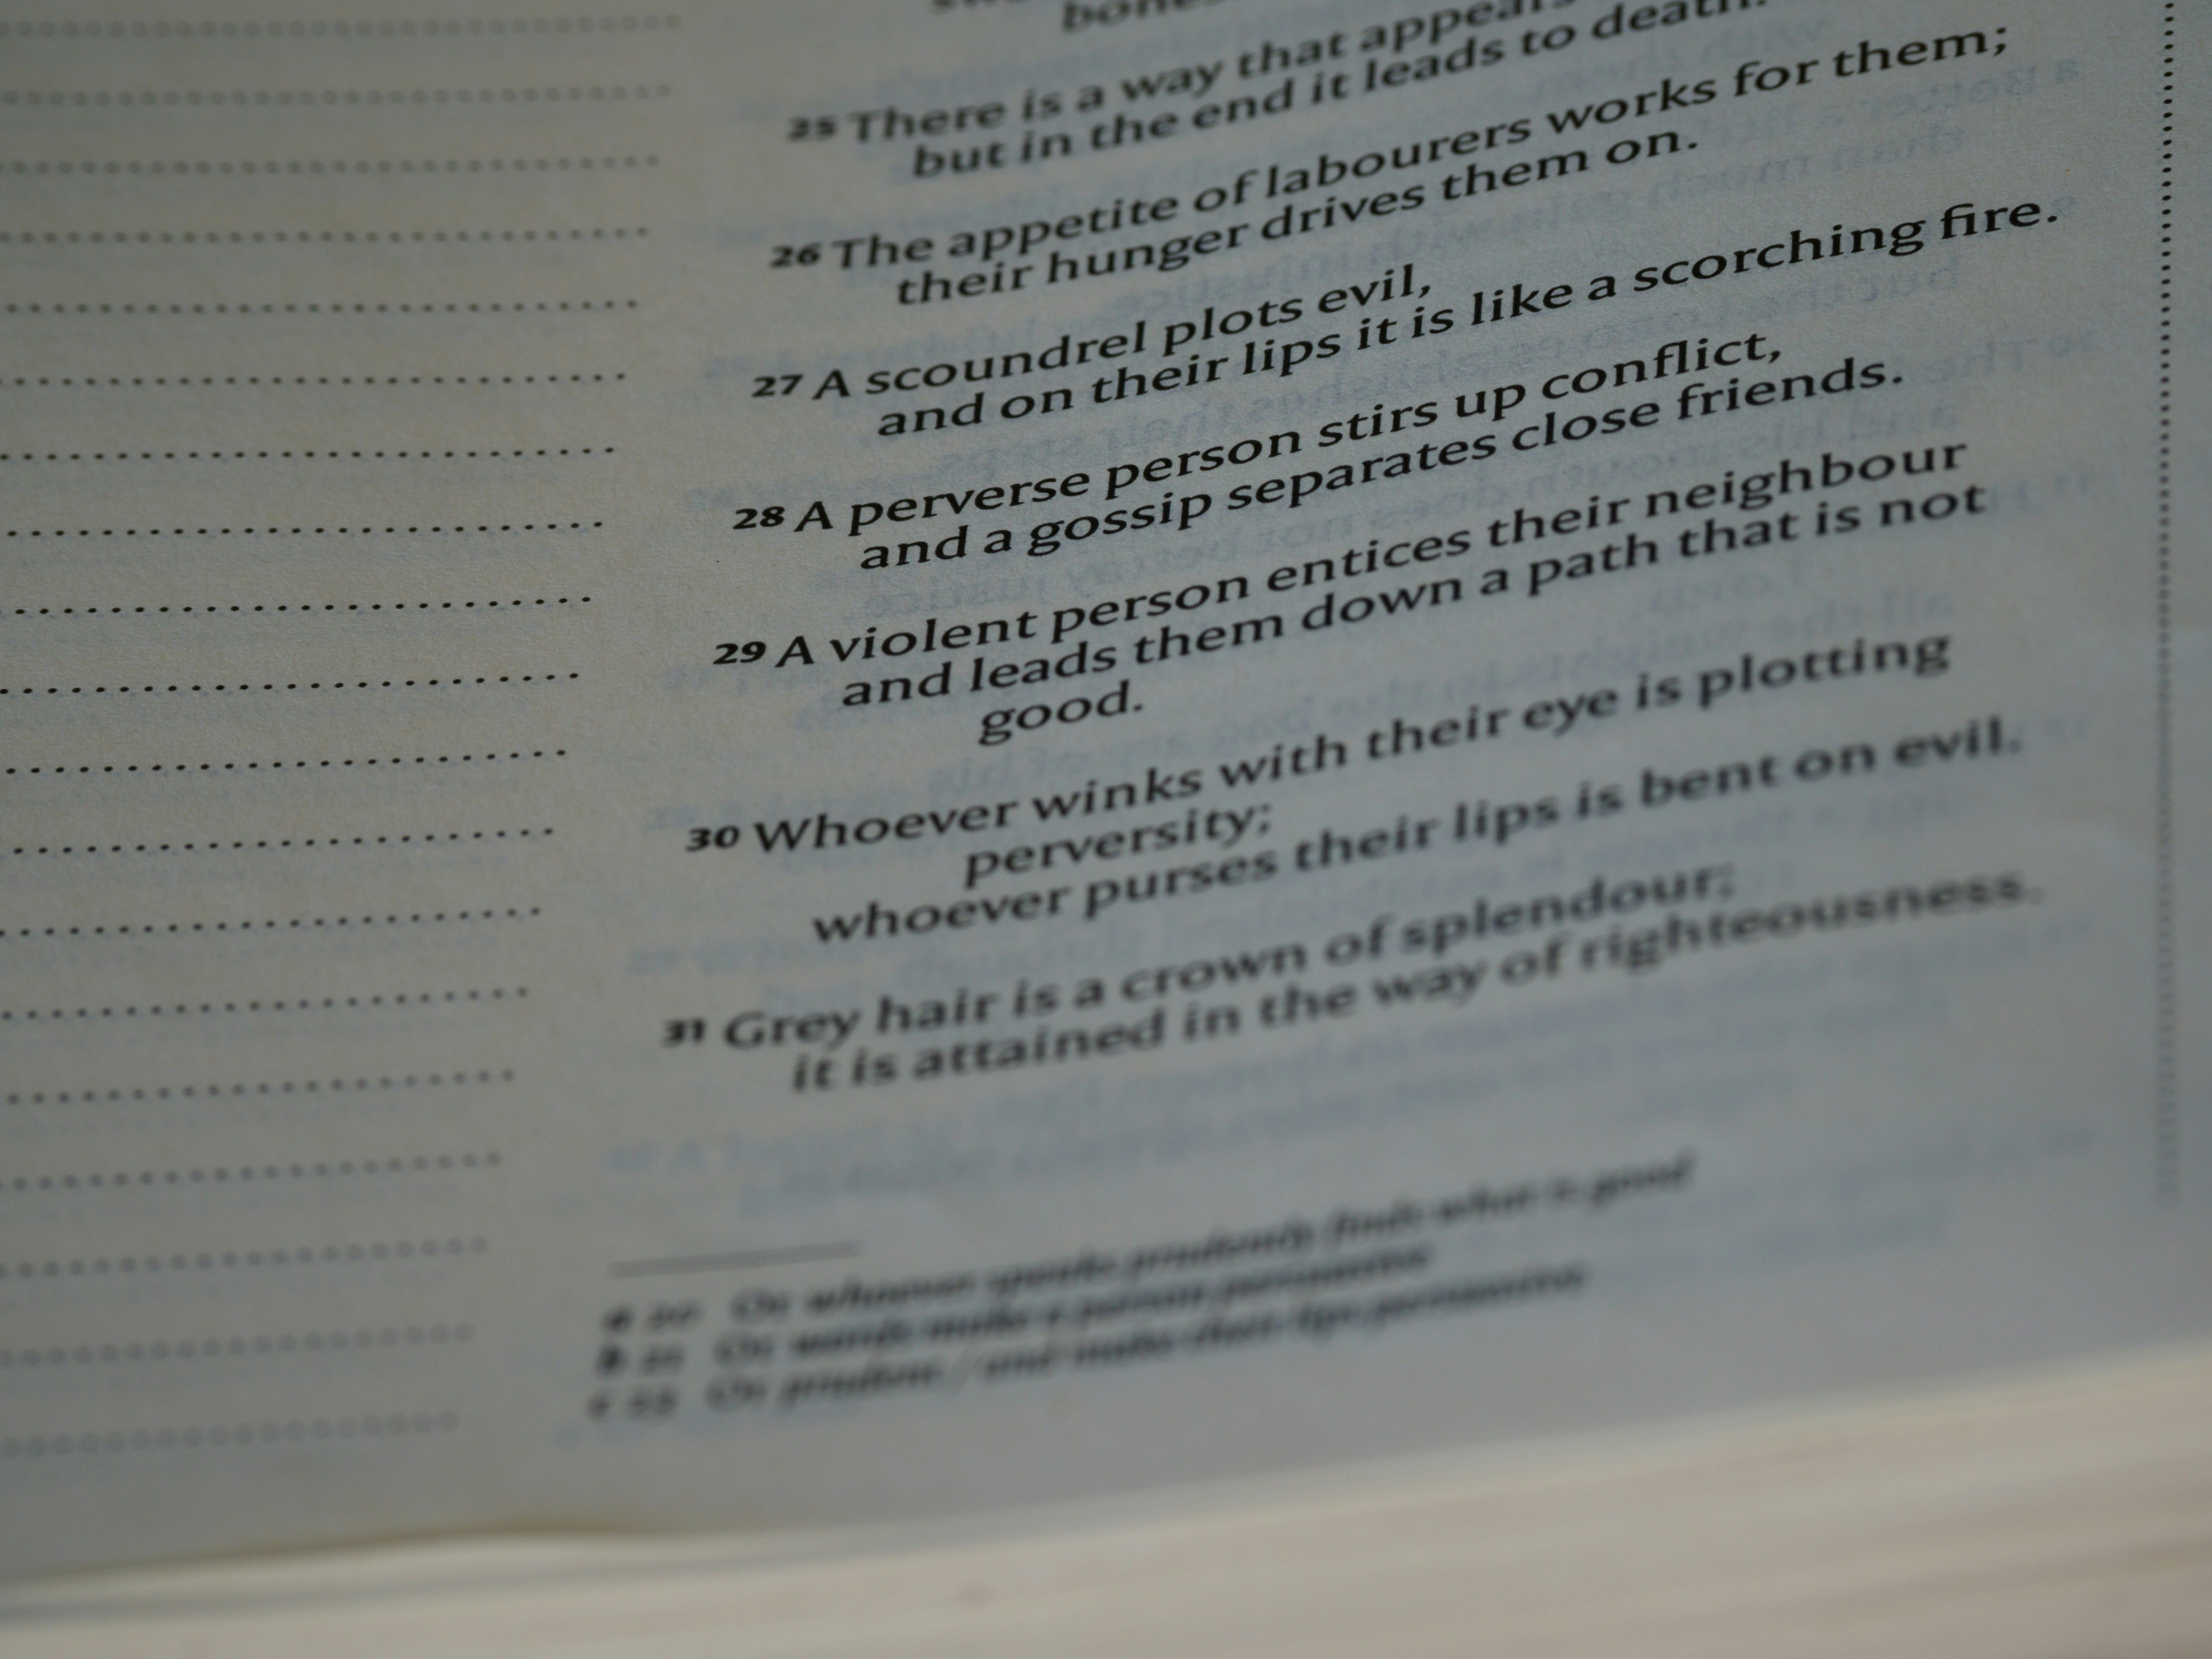 bone
25 There is a way that appears
but in the end it leads to death.
26 The appetite of labourers works for them;
their hunger drives them on.
27 A scoundrel plots evil,
and on their lips it is like a scorching fire.
28 A perverse person stirs up conflict,
and a gossip separates close friends.
29 A violent person entices their neighbour
and leads them down a path that is not
good.
30 Whoever winks with their eye is plotting
perversity;
whoever purses their lips is bent on evil.
31 Grey hair is a crown of splendour;
it is attained in the way of righteousness.
Or whoever speaks prudently finds what is good
Or words make a person persuasive
Or prudent / and make their lips persuasive